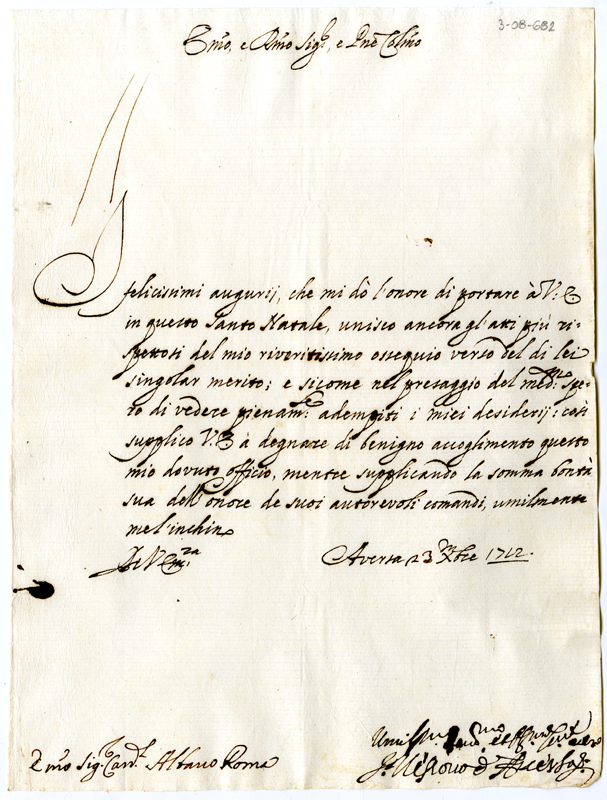 3-08-682
Emo, e Rmo Sigr, e Pne Colmo
felicissimi augurij, che mi dò l'onore di portare à V: E
in questo Santo Natale, unisco ancora gl'atti più ri-
spettosi del mio riveritissimo ossequio verso del di lei
singolar merito; e sicome nel presaggio del medmo: spe-
ro di vedere pienamte: adempiti i miei desiderij: così
supplico V: E à degnare di benigno accoglimento questo
mio dovuto officio, mentre supplicando la somma bontà
sua dell'onore de suoi autorevoli comandi, umilmente
me l'inchino
Di V Emza
Aversa 23 Xbre 1712.
Emo Sigr Cardl Albano Roma
Il Vescovo d'Aversa